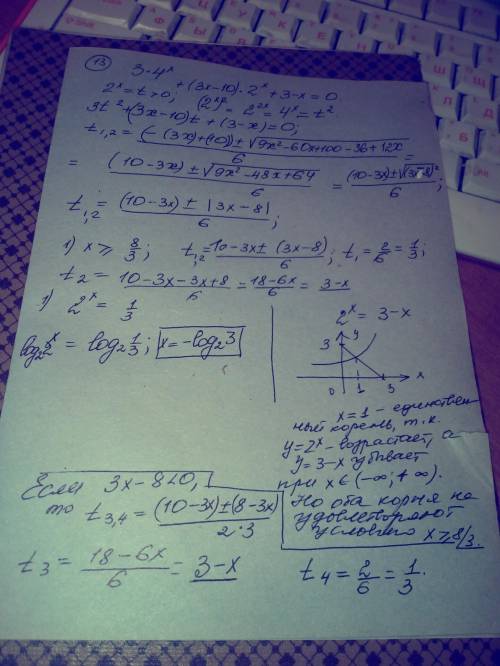 13) 3·4ˣ + (3x-10)·2ˣ + 3-x = 0.
2ˣ = t > 0, (2ˣ)² = 2²ˣ = 4ˣ = t²
3t² + (3x-10)t + (3-x) = 0;
t₁,₂ = (-(3x)+(10)) ± √9x²-60x+100-36+12x / 6 =
= (10-3x) ± √9x²-48x+64 / 6 = (10-3x) ± √(3x-8)² / 6;
t₁,₂ = (10-3x) ± |3x-8| / 6;
1) x ≥ 8/3; t₁,₂ = 10-3x ± (3x-8) / 6; t₁ = 2/6 = 1/3;
t₂ = 10-3x-3x+8 / 6 = 18-6x / 6 = 3-x
1) 2ˣ = 1/3
log₂2ˣ = log₂ 1/3; x = -log₂3
2ˣ = 3-x
3
0 1 3 x
x=1 - единствен
ный корень, т.к.
y=2ˣ - возрастает, а
y=3-x убывает
при x∈(-∞;+∞).
Но оба корня не
удовлетворяют
условию x ≥ 8/3.
Если 3x-8<0,
то t₃,₄ = (10-3x) ± (8-3x) / 2·3
t₃ = 18-6x / 6 = 3-x
t₄ = 2/6 = 1/3.